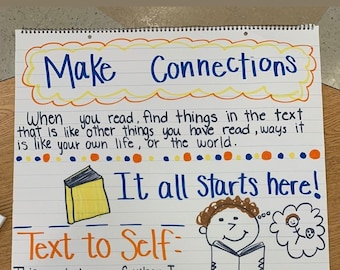 Make Connections
When you read, find things in the text
that is like other things you have read, ways it
is like your own life, or the world.
It all starts here!
Text to Self: